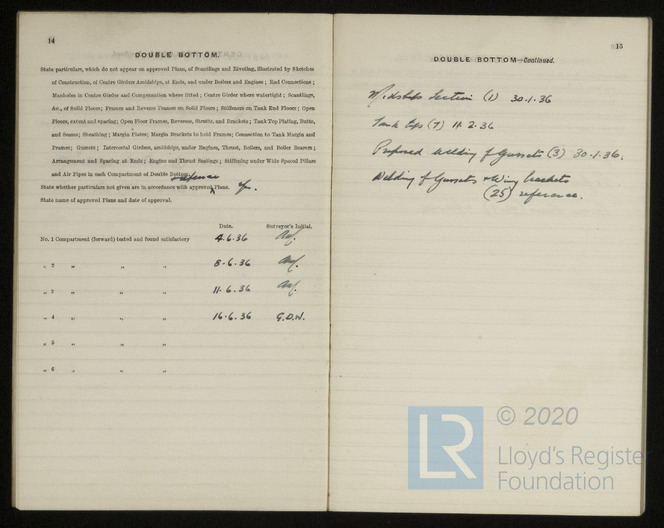 14
DOUBLE BOTTOM.
State particulars, which do not appear on approved Plans, of Scantlings and Riveting, illustrated by Sketches
of Construction, of Centre Girders Amidships, at Ends, and under Boilers and Engines; End Connections;
Manholes in Centre Girder and Compensation where fitted; Centre Girder where watertight; Scantlings,
&c., of Solid Floors; Frames and Reverse Frames on Solid Floors; Stiffeners on Tank End Floors; Open
Floors, extent and spacing; Open Floor Frames, Reverses, Struts, and Brackets; Tank Top Plating, Butts,
and Seams; Sheathing; Margin Plates; Margin Brackets to hold Frames; Connection to Tank Margin and
Frames; Gussets; Intercostal Girders, amidships, under Engines, Thrust, Boilers, and Boiler Bearers;
Arrangement and Spacing at Ends; Engine and Thrust Seatings; Stiffening under Wide Spaced Pillars
and Air Pipes in each Compartment of Double Bottom.
State whether particulars not given are in accordance with approved Plans. Yes.
State name of approved Plans and date of approval.
Date. Surveyor's Initial.
No. 1 Compartment (forward) tested and found satisfactory 4.6.36
„ 2 „ „ „ 8.6.36
„ 3 „ „ „ 11.6.36
„ 4 „ „ „ 16.6.36 G.D.W.
„ 5 „ „ „
„ 6 „ „ „
15
DOUBLE BOTTOM—Continued.
Midships Section (1) 30.1.36
Tank tops (7) 11.2.36
Proposed welding of Gussets (3) 30.1.36.
Welding of Gussets & Wing brackets
(25) reference.
LR
© 2020
Lloyd's Register
Foundation